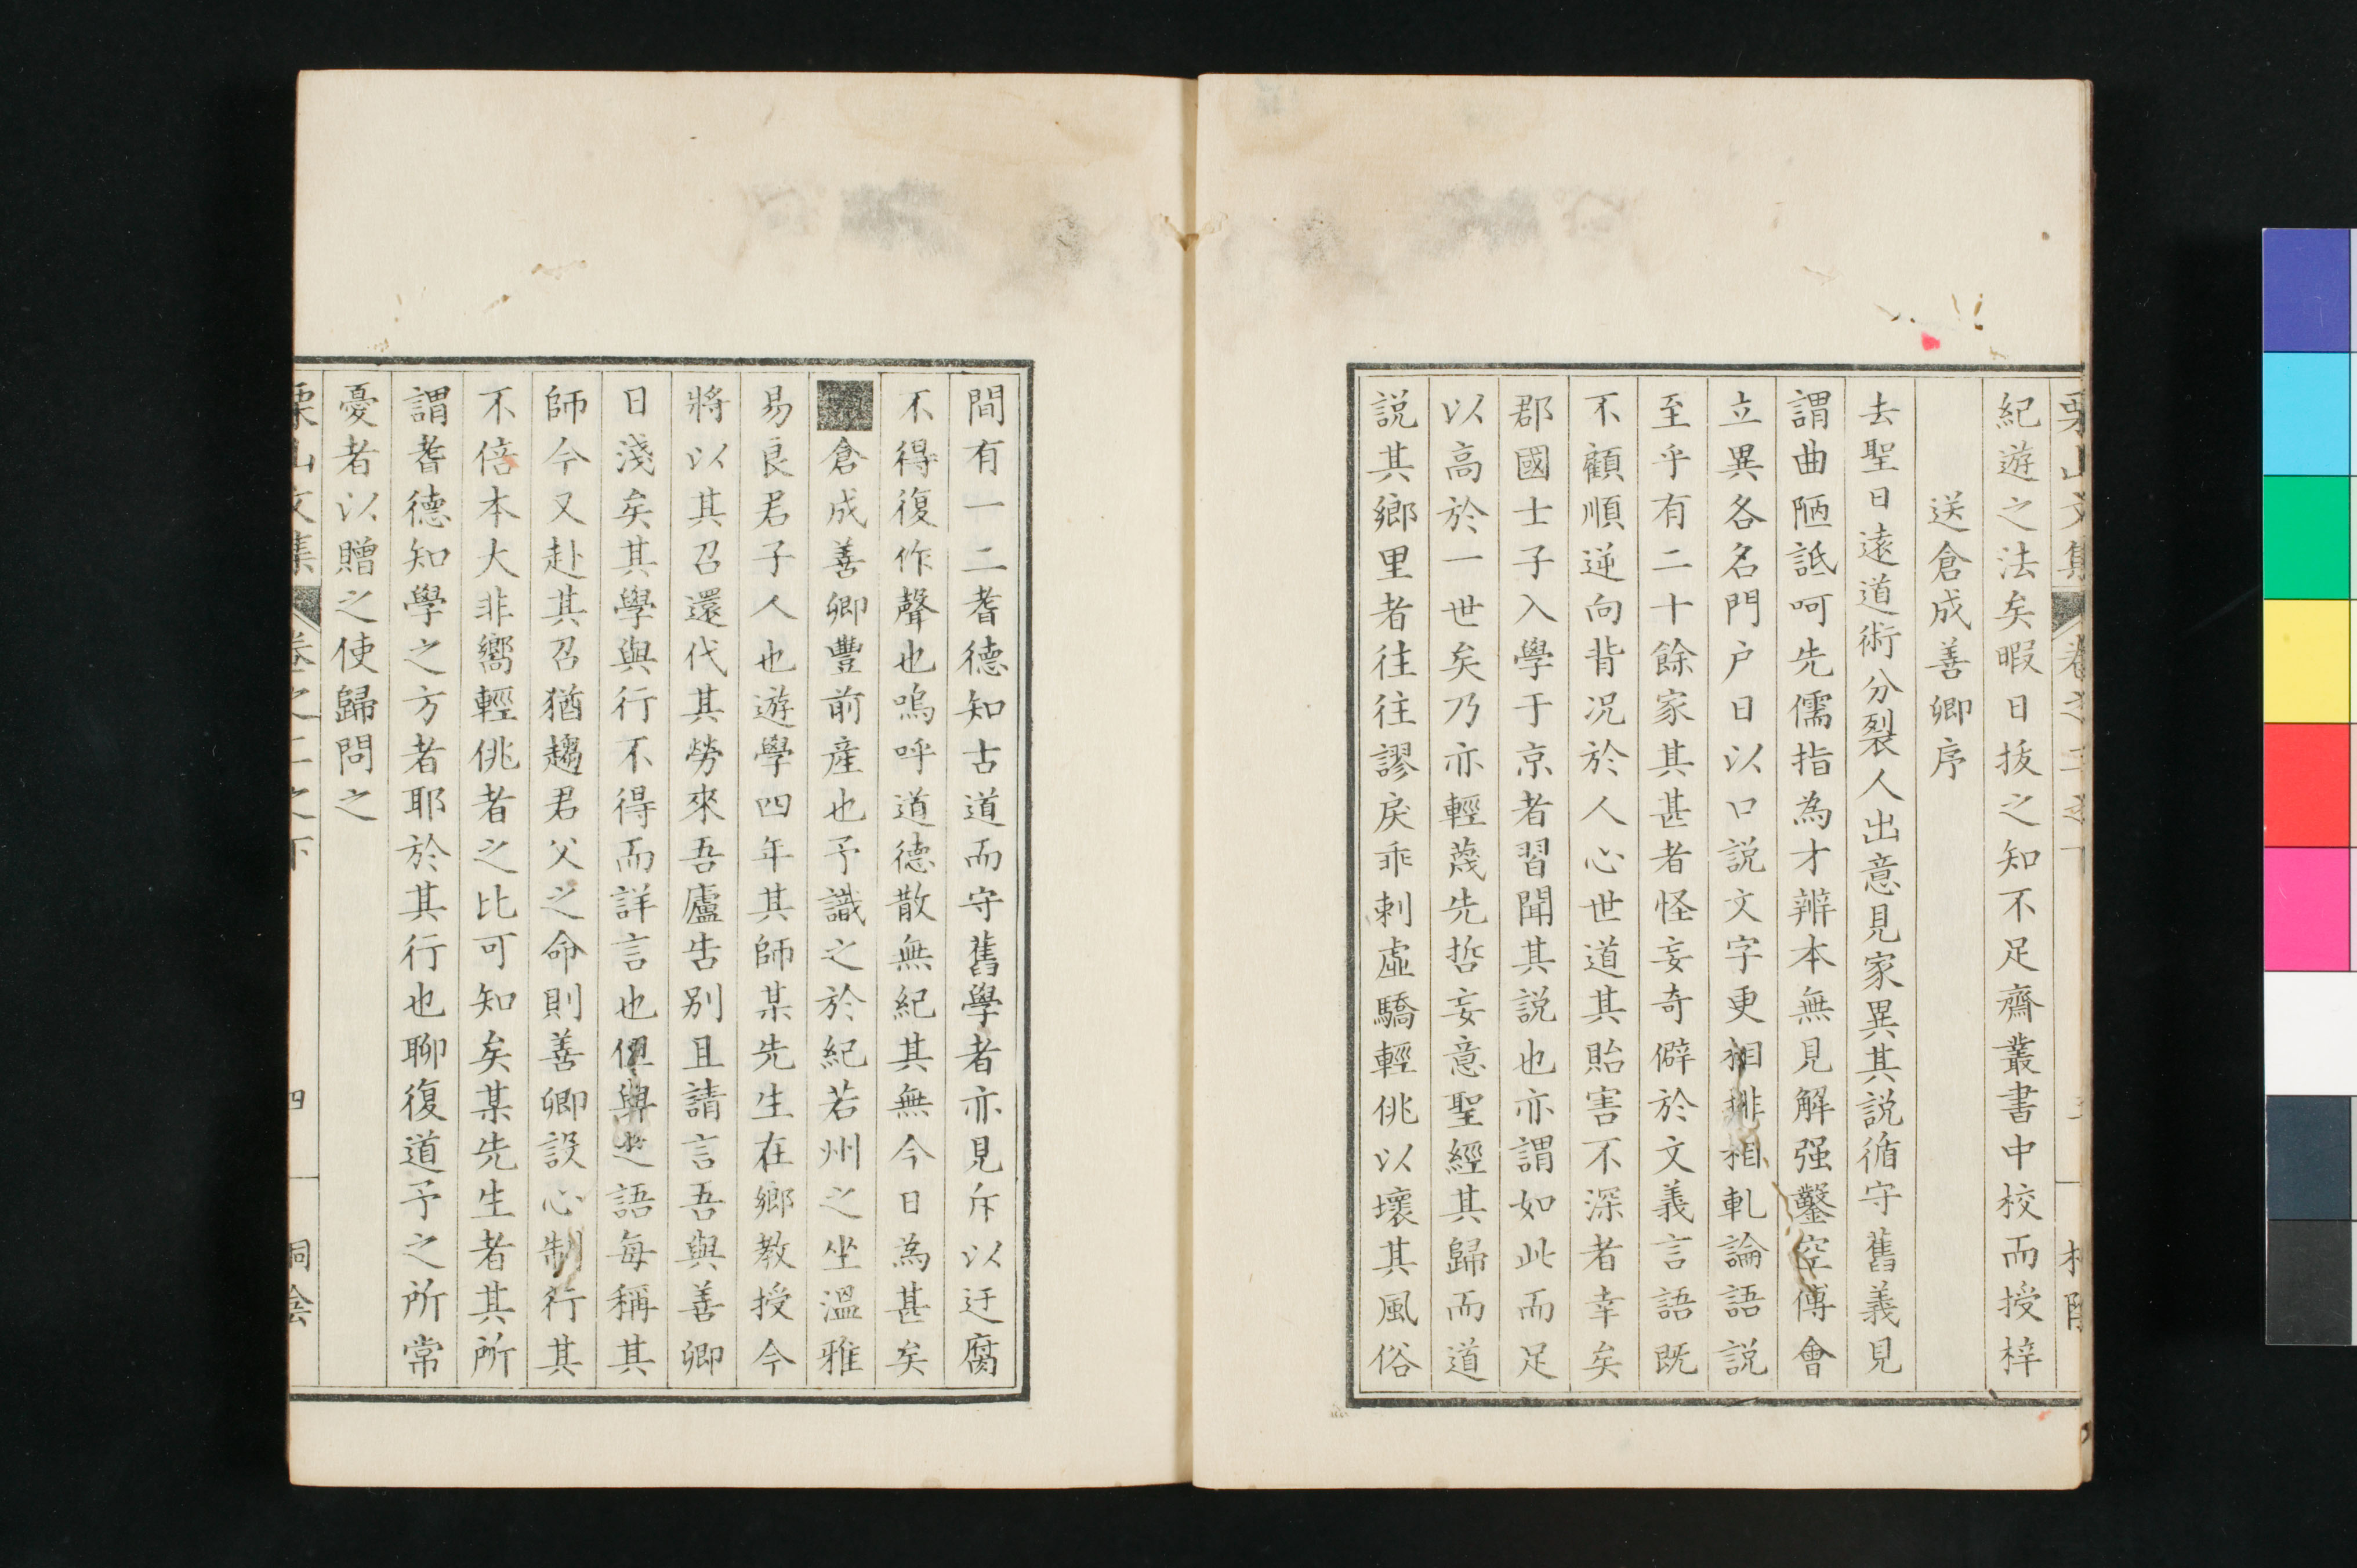 栗山文集 卷之二之下
紀遊之法矣暇日抜之知不足齋叢書中校而授梓
送倉成善卿序
去聖日遠道術分裂人出意見家異其説循守舊義見
謂曲陋詆呵先儒指為才辨本無見解强鑿空傅會
立異各名門户日以口説文字更相排相軋論語説
至乎有二十餘家其甚者怪妄奇僻於文義言語既
不顧順逆向背况於人心世道其貽害不深者幸矣
郡國士子入學于京者習聞其説也亦謂如此而足
以高於一世矣乃亦輕蔑先哲妄意聖經其歸而道
説其鄉里者往往謬戾乖剌虛驕輕佻以壞其風俗
間有一二耆德知古道而守舊學者亦見斥以迂腐
不得復作聲也嗚呼道德散無紀其無今日為甚矣
倉成善卿豐前産也予識之於紀若州之坐溫雅
易良君子人也遊學四年其師某先生在鄉教授今
將以其召還代其勞來吾廬告别且請言吾與善卿
日淺矣其學與行不得而詳言也但與之語每稱其
師今又赴其召猶趨君父之命則善卿設心制行其
不倍本大非嚮輕佻者之比可知矣某先生者其所
謂耆德知學之方者耶於其行也聊復道予之所常
憂者以贈之使歸問之
栗山文集 卷之二之下 四